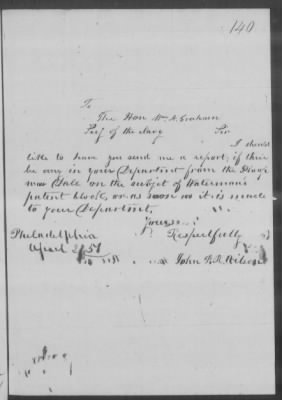 140
To
The Hon Wm A. Graham
Secy of the Navy Sir
I should
like to have you send me a report, if there
be any in your Department from the Sloop
was Dale on the subject of Waterman's
patent blocks, or as soon as it is made
to your Department,
yours
Philadelphia Respectfully
April 2 / 51
John R. R. Wilson